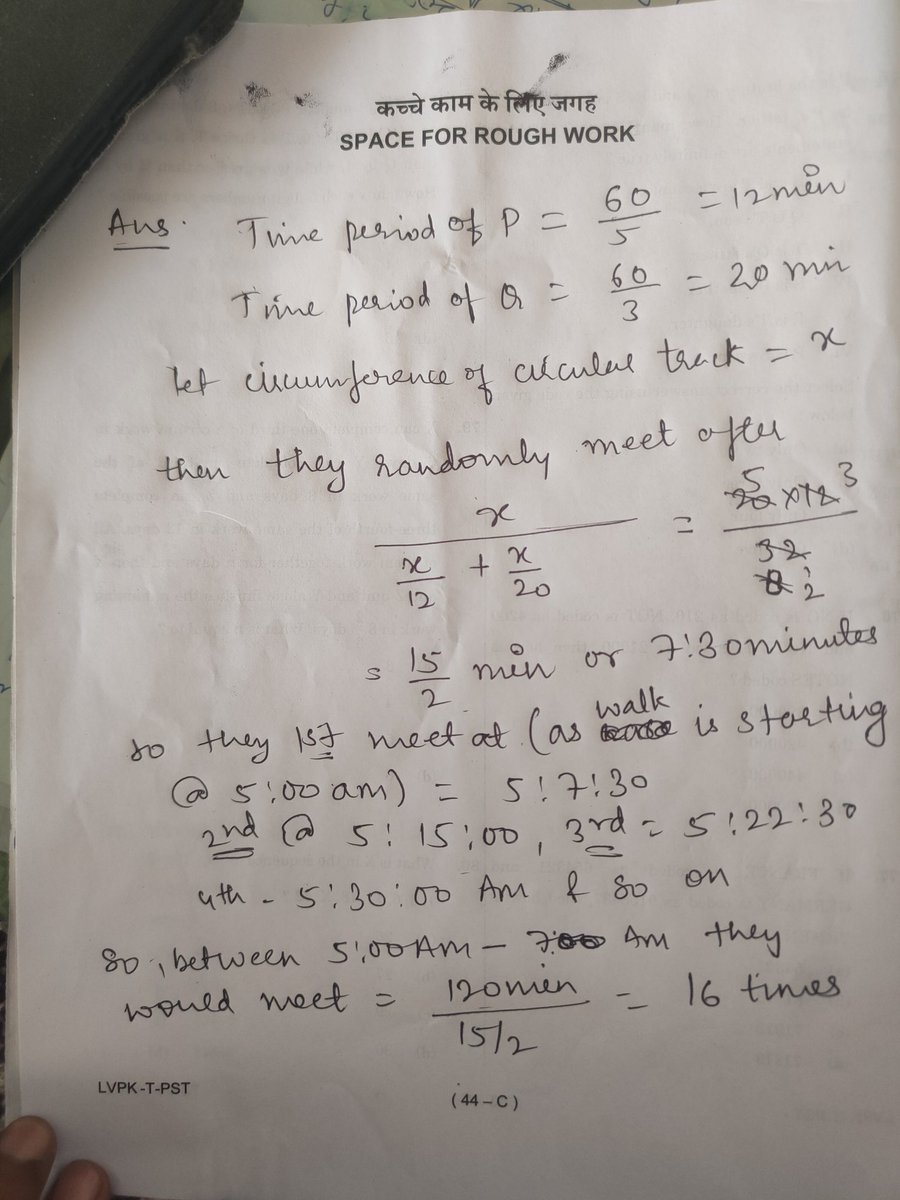 कच्चे काम के लिए जगह
SPACE FOR ROUGH WORK
Ans. Time period of P = 60/5 = 12 min
Time period of Q = 60/3 = 20 min
let circumference of circular track = x
then they randomly meet after
x / (x/12 + x/20) = 20 5 x 12 3 / 32 8 2
= 15/2 min or 7:30 minutes
so they 1st meet at (as walk is starting
@ 5:00 am) = 5:7:30
2nd @ 5:15:00, 3rd = 5:22:30
4th - 5:30:00 Am & so on
So, between 5:00 Am - 7:00 Am they
would meet = 120 min / 15/2 = 16 times
LVPK-T-PST
(44 – C)